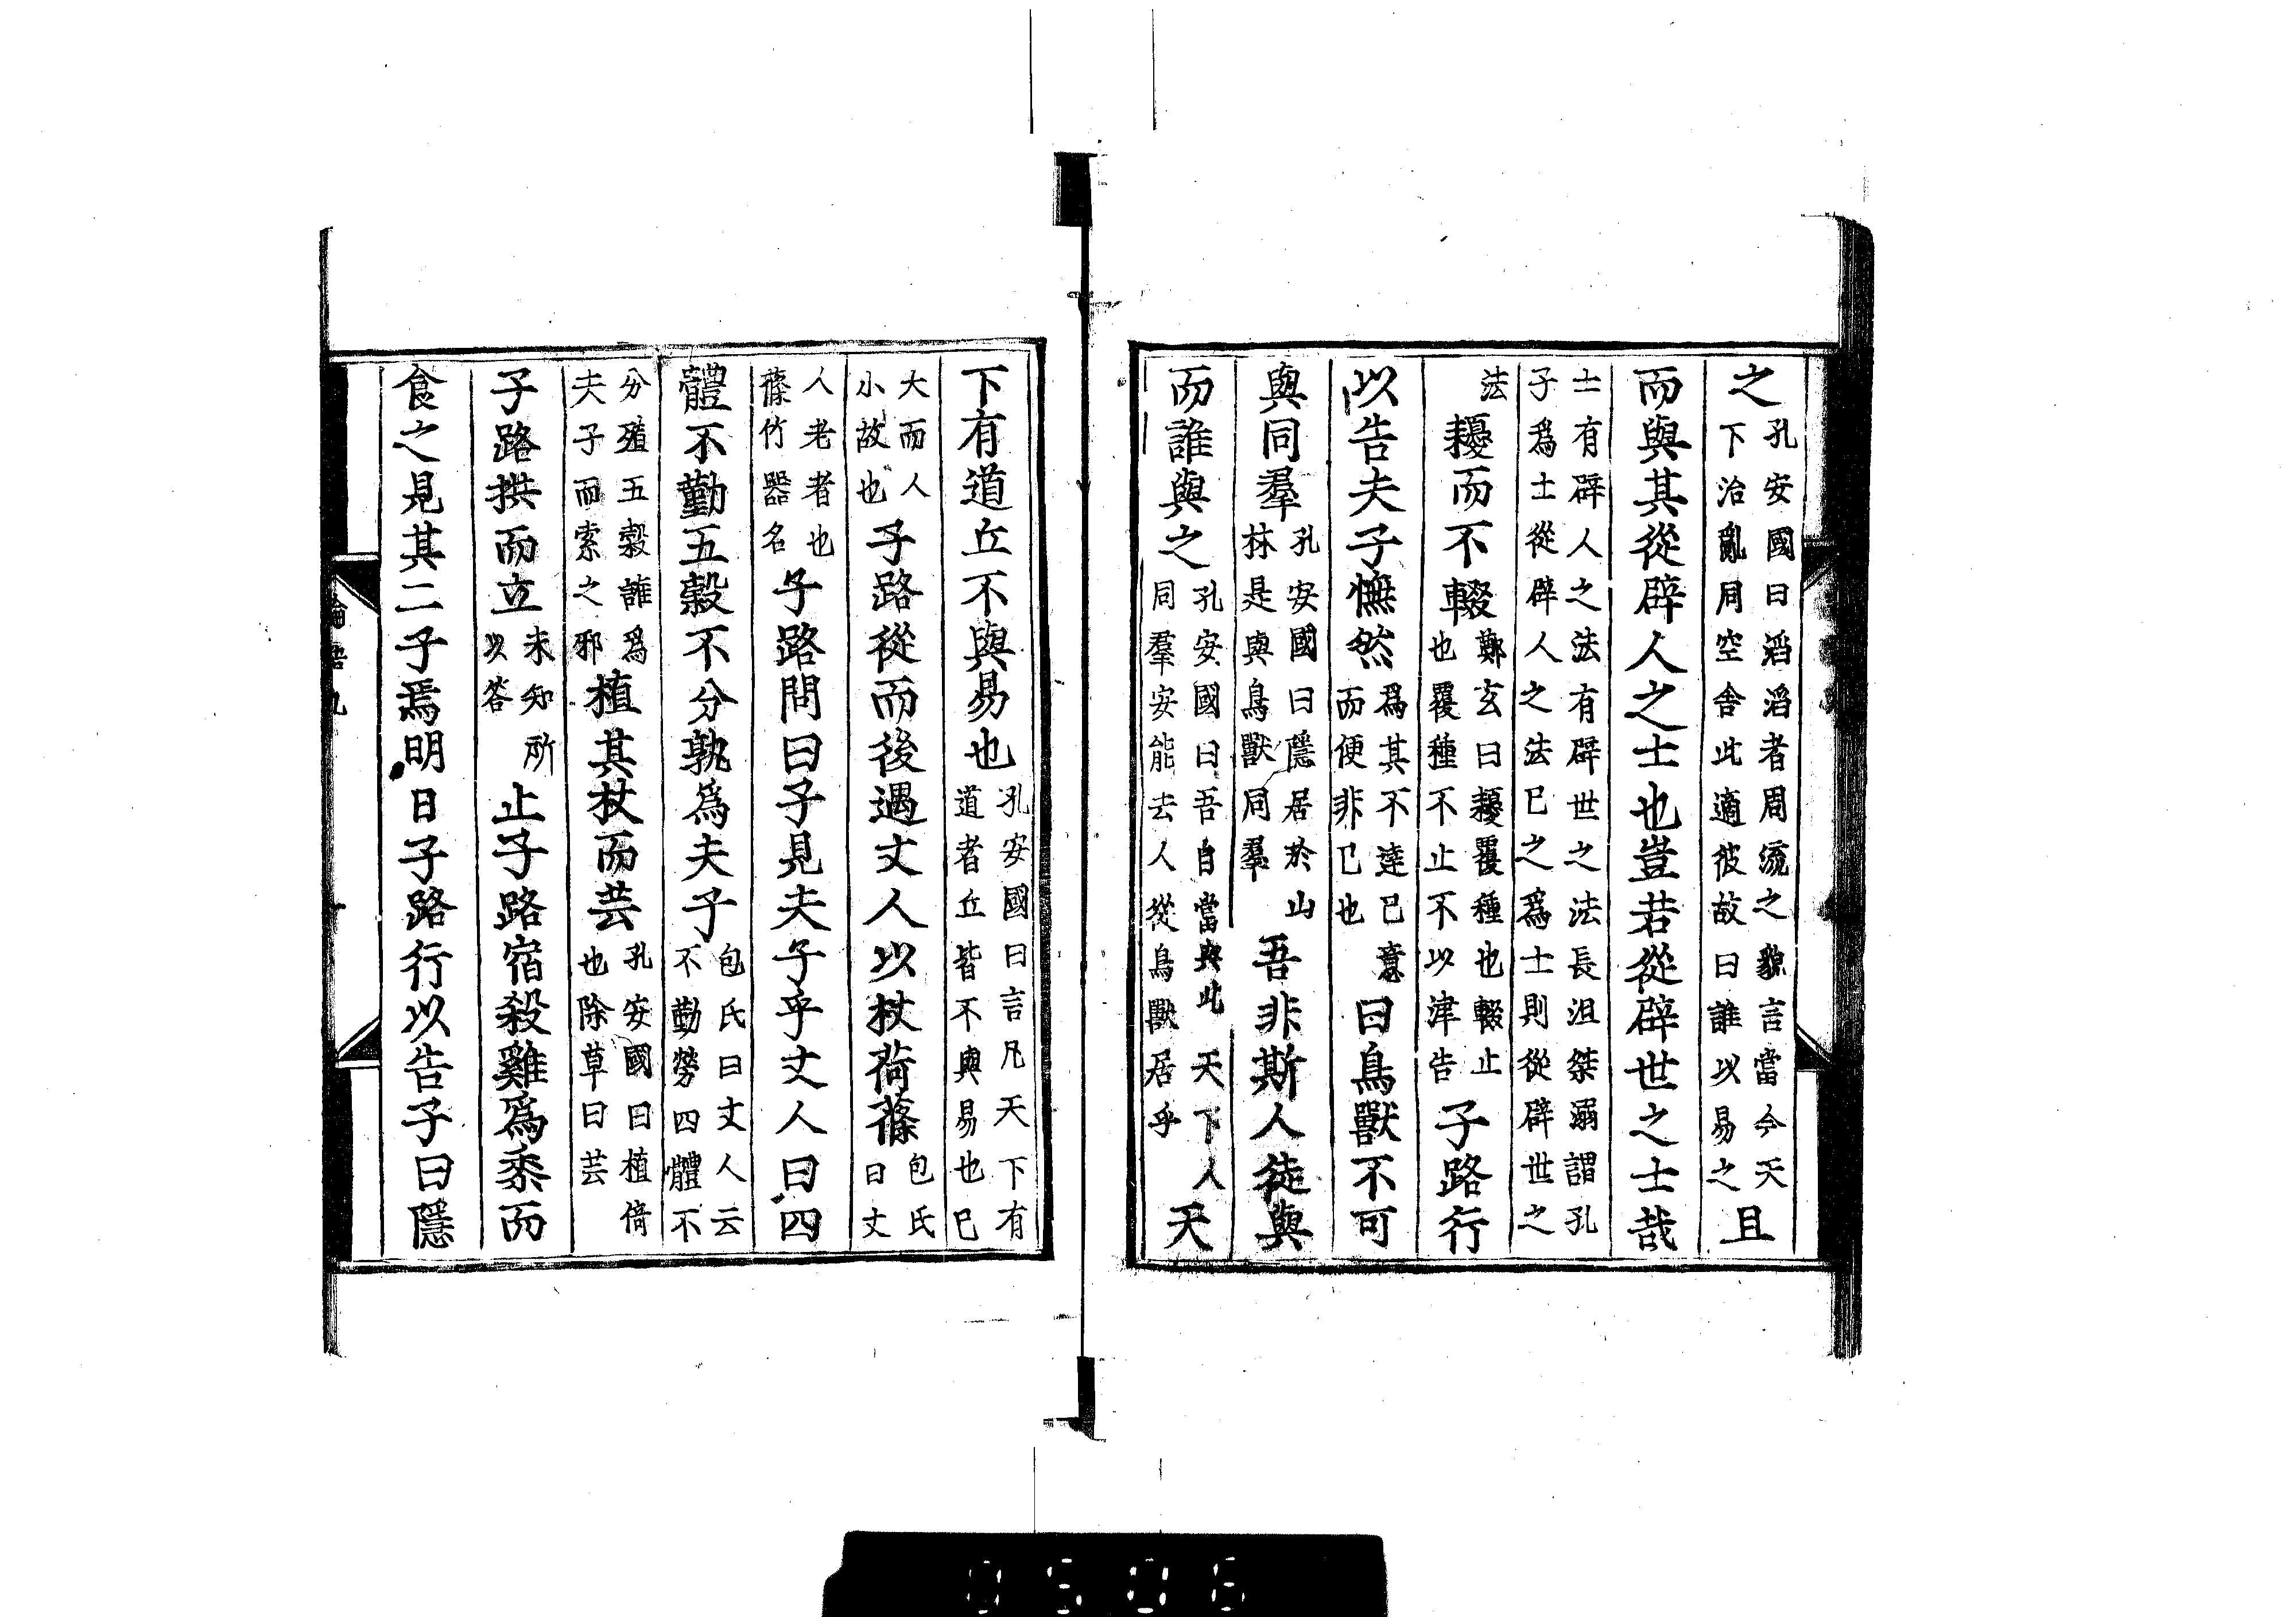 之孔安國曰滔滔者周流之貌言當今天下治亂同空舍此適彼故曰誰以易之且
而與其從辟人之士也豈若從辟世之士哉
士有辟人之法有辟世之法長沮桀溺謂孔子爲士從辟人之法已之爲士則從辟世之
法耰而不輟鄭玄曰耰覆種也輟止也覆種不止不以津告子路行
以告夫子憮然爲其不達已意而便非已也曰鳥獸不可
與同羣孔安國曰隱居於山林是與鳥獸同羣吾非斯人徒與
而誰與之孔安國曰吾自當與此天下人同羣安能去人從鳥獸居乎天
下有道丘不與易也孔安國曰言凡天下有道者丘皆不與易也已
大而人小故也子路從而後遇丈人以杖荷蓧包氏曰丈
人老者也蓧竹器名子路問曰子見夫子乎丈人曰四
體不勤五穀不分孰爲夫子包氏曰丈人云不勤勞四體不
分殖五穀誰爲夫子而索之邪植其杖而芸孔安國曰植倚也除草曰芸
子路拱而立未知所以答止子路宿殺雞爲黍而
食之見其二子焉明日子路行以告子曰隱
論語九
0506